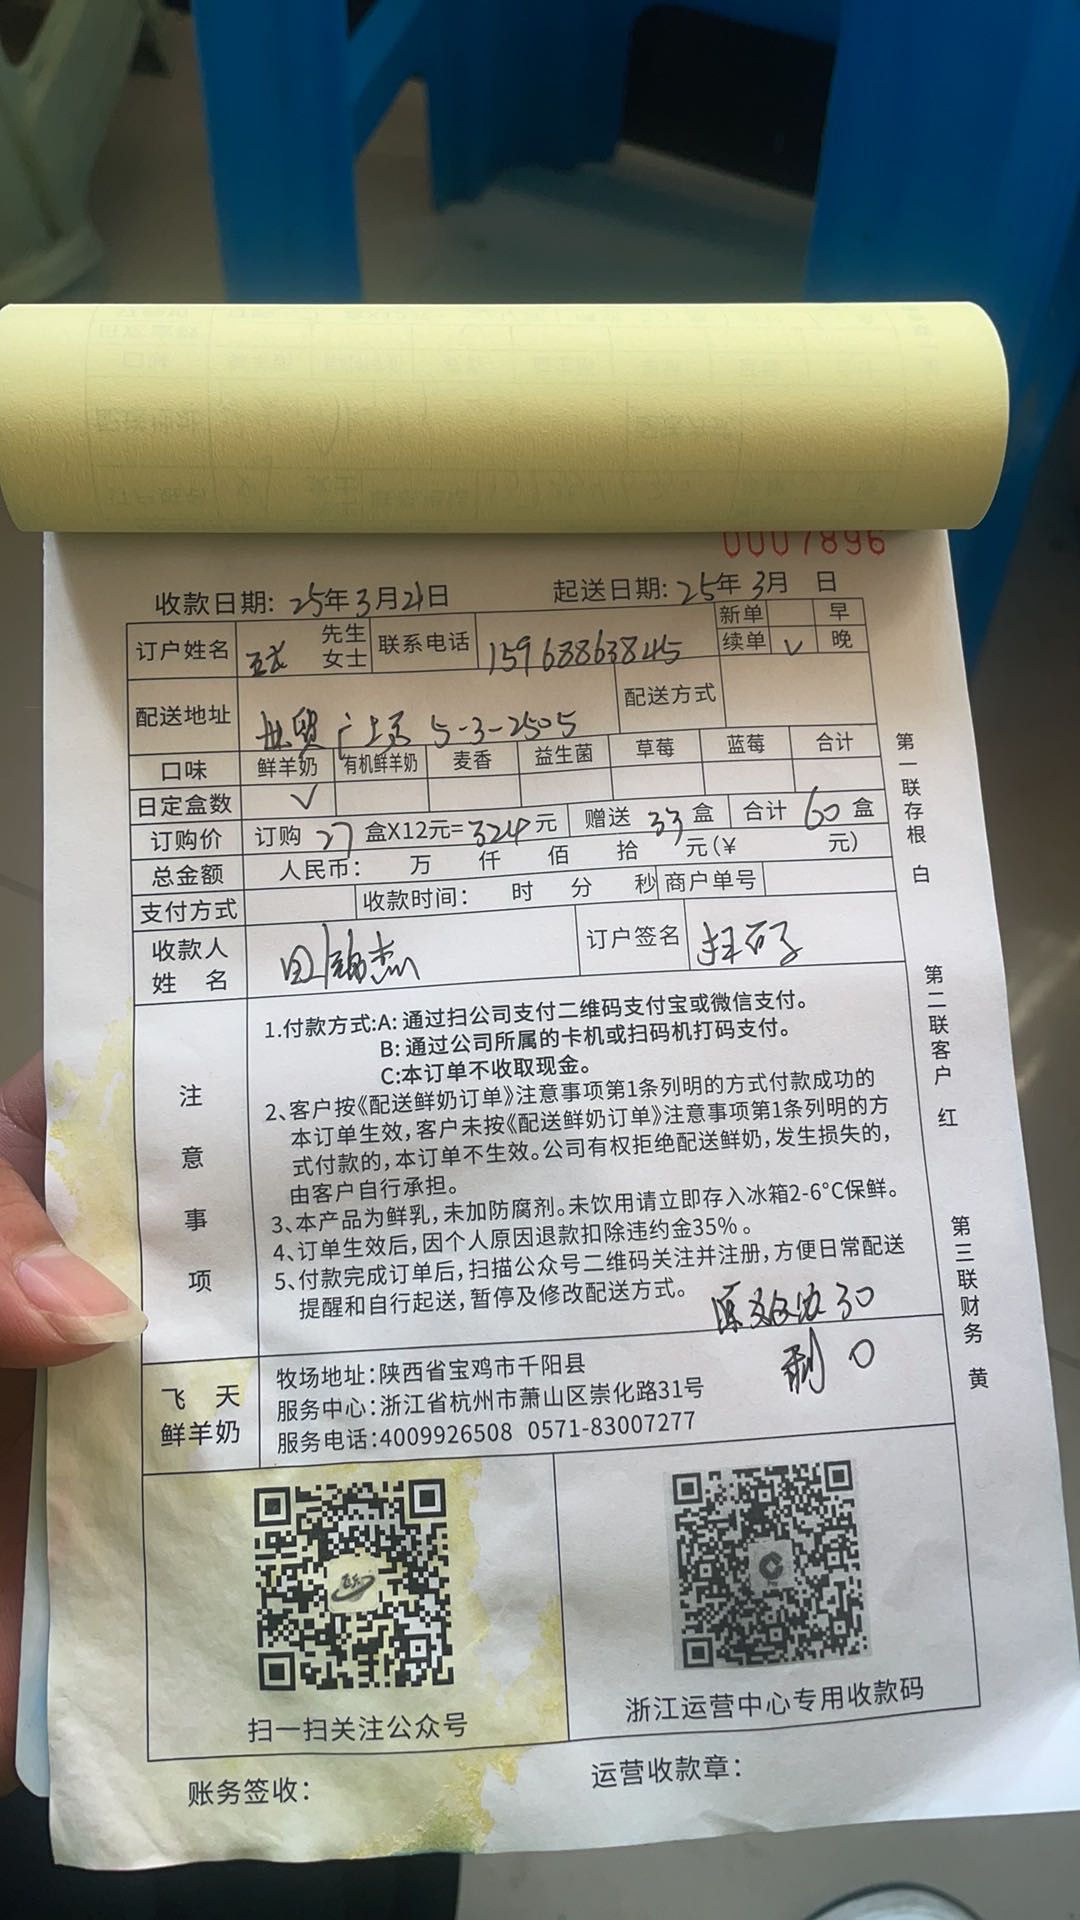 0007896
收款日期: 25年3月21日 起送日期: 25年3月 日
订户姓名 先生 女士 联系电话 15968863845 新单 早
续单 √ 晚
配送地址 世贸广场 5-3-2505 配送方式
口味 鲜羊奶 有机鲜羊奶 麦香 益生菌 草莓 蓝莓 合计
日定盒数 √
订购价 订购 27 盒X12元=324元 赠送 33 盒 合计 60 盒
总金额 人民币: 万 仟 佰 拾 元(¥ 元)
支付方式 收款时间: 时 分 秒 商户单号
收款人姓名 田锦杰 订户签名 扫码了
注意事项
1.付款方式:A: 通过扫公司支付二维码支付宝或微信支付。
B: 通过公司所属的卡机或扫码机打码支付。
C:本订单不收取现金。
2、客户按《配送鲜奶订单》注意事项第1条列明的方式付款成功的
本订单生效,客户未按《配送鲜奶订单》注意事项第1条列明的方
式付款的,本订单不生效。公司有权拒绝配送鲜奶,发生损失的,
由客户自行承担。
3、本产品为鲜乳,未加防腐剂。未饮用请立即存入冰箱2-6°C保鲜。
4、订单生效后,因个人原因退款扣除违约金35%。
5、付款完成订单后,扫描公众号二维码关注并注册,方便日常配送
提醒和自行起送,暂停及修改配送方式。
30
剩 0
飞天
鲜羊奶
牧场地址:陕西省宝鸡市千阳县
服务中心:浙江省杭州市萧山区崇化路31号
服务电话:4009926508 0571-83007277
扫一扫关注公众号
浙江运营中心专用收款码
账务签收: 运营收款章:
第一联存根 白
第二联客户 红
第三联财务 黄